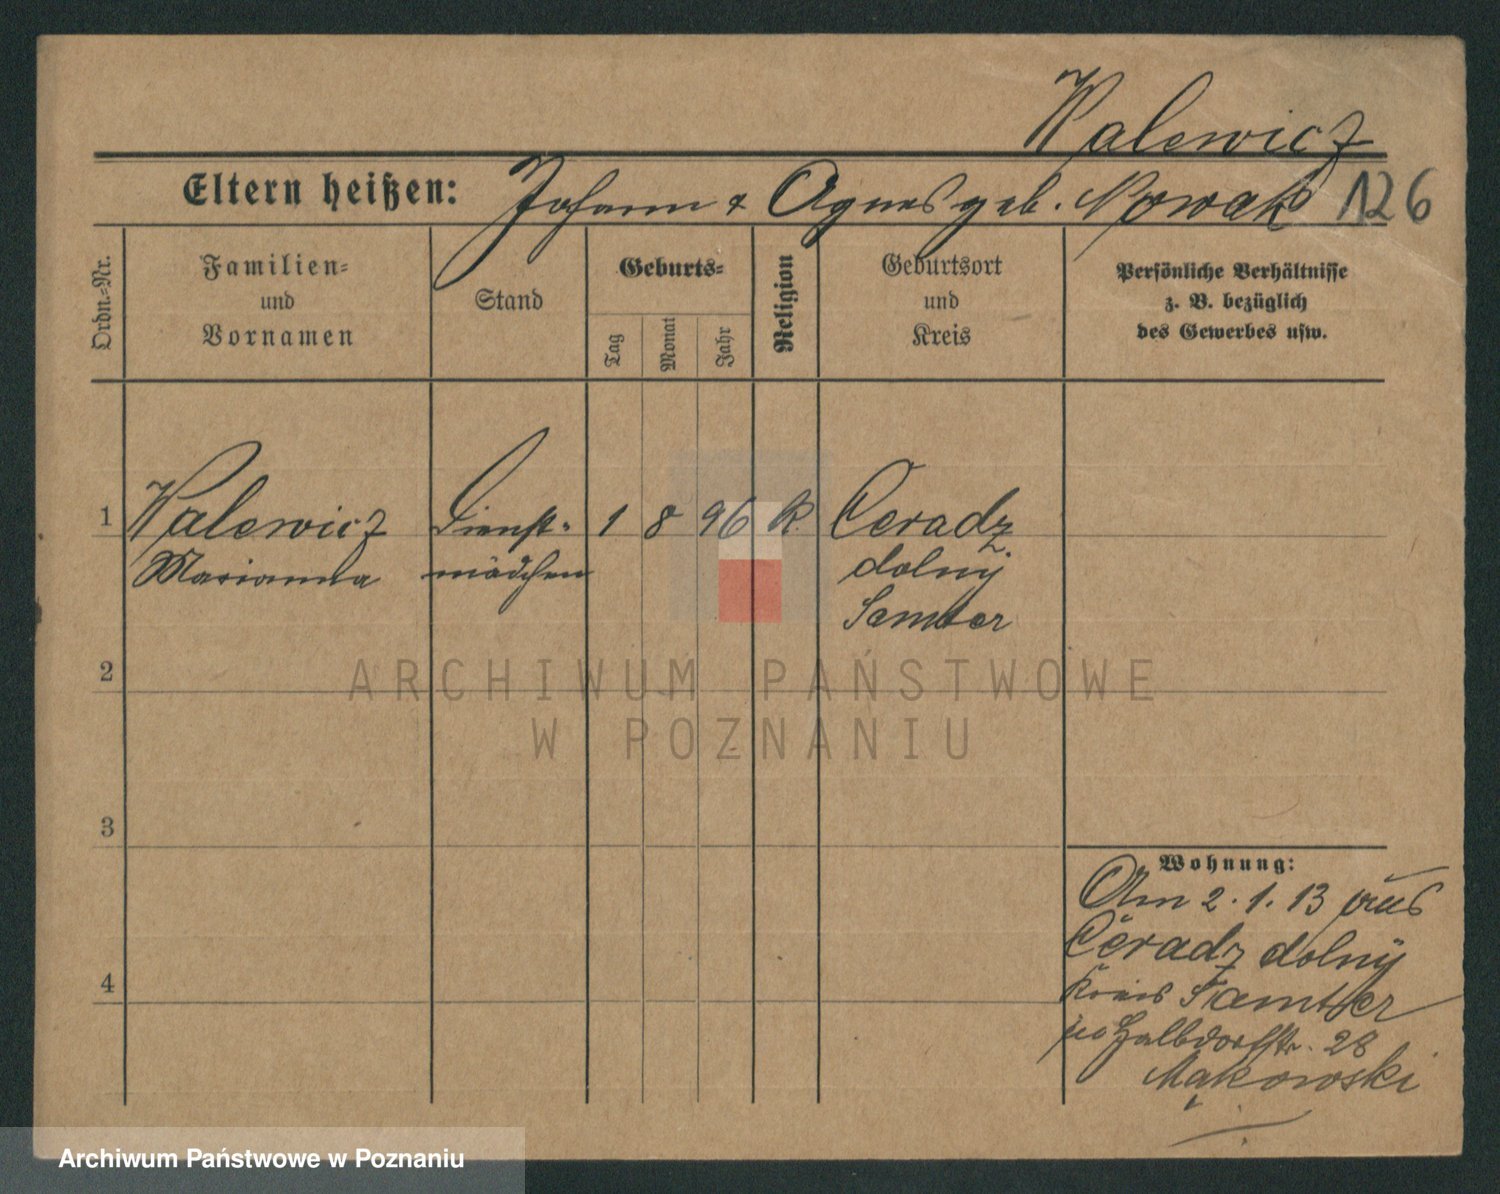 Walewicz
Eltern heißen: Johann & Agnes geb. Nowak 126
Ordn.-Nr.
Familien-
und
Vornamen
Stand
Geburts-
Tag
Monat
Jahr
Religion
Geburtsort
und
Kreis
Persönliche Verhältnisse
z. B. bezüglich
des Gewerbes usw.
1 Walewicz Dienst- 1 8 96 k. Ceradz
Marianna mädchen dolny
Samter
2
3
4
Wohnung:
Am 2.1.13 aus
Ceradz dolny
Kreis Samter
Halbdorfstr. 28
Mąkowski
ARCHIWUM PAŃSTWOWE
W POZNANIU
Archiwum Państwowe w Poznaniu